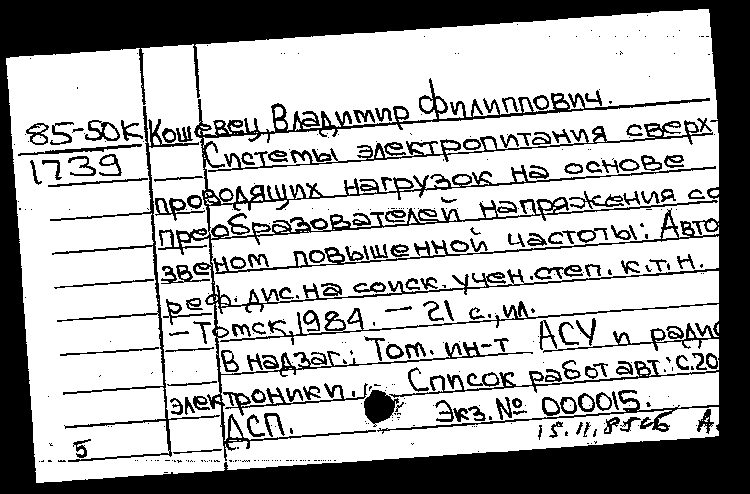 85-50К Кошевец, Владимир Филиппович.
1739 Системы электропитания сверх-
проводящих нагрузок на основе
преобразователей напряжения со
звеном повышенной частоты: Авто
реф. дис. на соиск. учен. степ. к.т.н.
– Томск, 1984. – 21 с., ил.
В надзаг.: Том. ин-т АСУ и радио
электроники. Список работ авт.: с. 20
ДСП. Экз. № 000015.
5 15.11.85